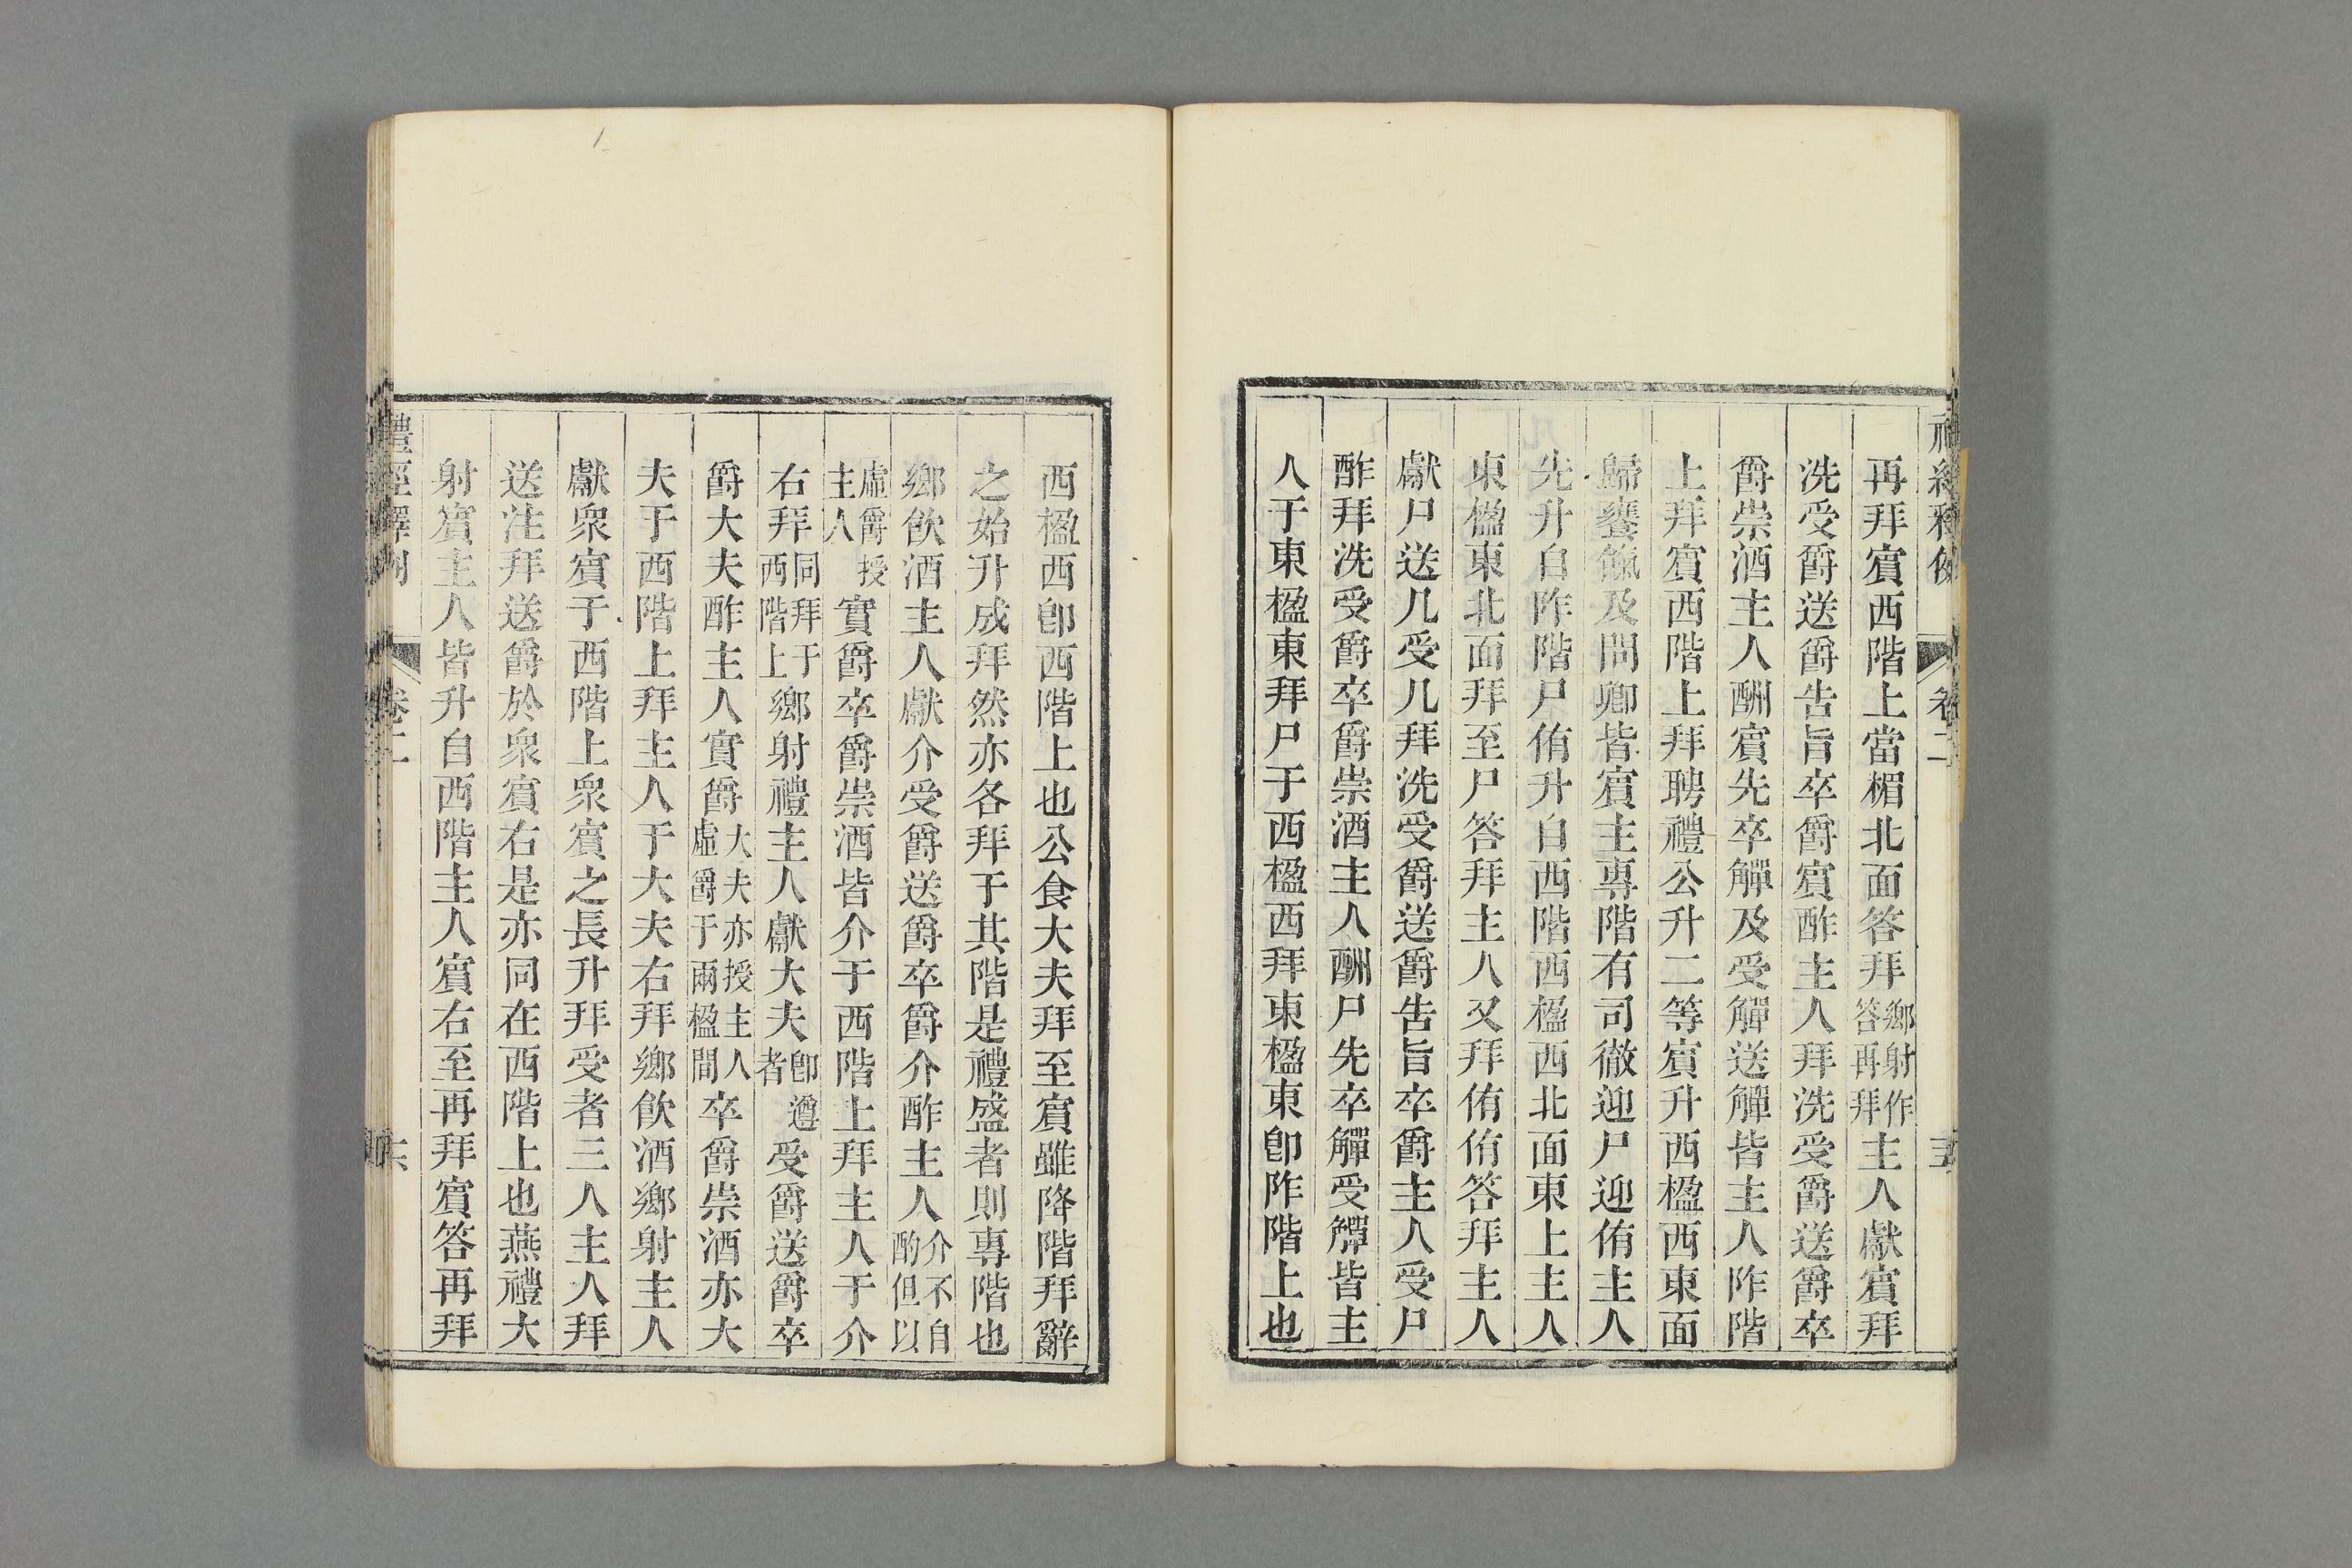 再拜賔西階上當楣北面答拜鄉射作答再拜主人獻賔拜
洗受爵送爵告旨卒爵賔酢主人拜洗受爵送爵卒
爵崇酒主人酬賔先卒觶及受觶送觶皆主人阼階
上拜賔西階上拜聘禮公升二等賔升西楹西東面
歸饔餼及問卿皆賔主專階有司徹迎尸迎侑主人
先升自阼階尸侑升自西階西楹西北面東上主人
東楹東北面拜至尸答拜主人又拜侑侑答拜主人
獻尸送几受几拜洗受爵送爵告旨卒爵主人受尸
酢拜洗受爵卒爵崇酒主人酬尸先卒觶受觶皆主
人于東楹東拜尸于西楹西拜東楹東卽阼階上也
西楹西卽西階上也公食大夫拜至賔雖降階拜辭
之始升成拜然亦各拜于其階是禮盛者則專階也
鄉飲酒主人獻介受爵送爵卒爵介酢主人介不自酌但以
虛爵授主人實爵卒爵崇酒皆介于西階上拜主人于介
右拜同拜于西階上鄉射禮主人獻大夫卽遵者受爵送爵卒
爵大夫酢主人實爵大夫亦授主人虛爵于兩楹間卒爵崇酒亦大
夫于西階上拜主人于大夫右拜鄉飲酒鄉射主人
獻衆賔于西階上衆賔之長升拜受者三人主人拜
送注拜送爵於衆賔右是亦同在西階上也燕禮大
射賔主人皆升自西階主人賔右至再拜賔答再拜
禮經釋例
卷二